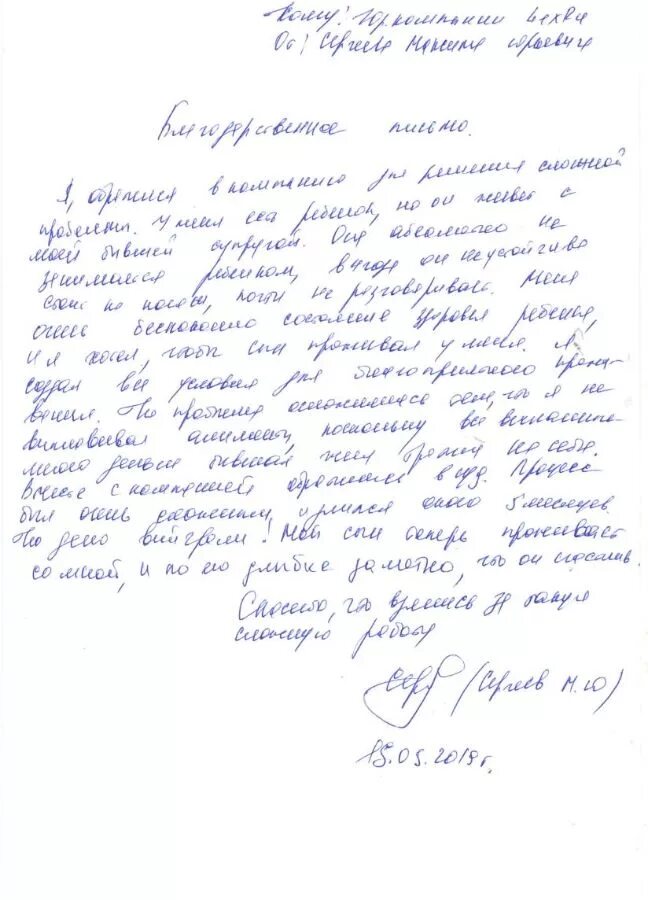 Кому: Юр. компании
От: Сергеева Максима Юрьевича
Благодарственное письмо.
Я, обратился в компанию для решения сложной
проблемы. У меня есть ребёнок, но он живет с
моей бывшей супругой. Она абсолютно не
занималась ребёнком, в он неустойчиво
стоит на ногах, почти не разговаривает. Меня
очень беспокоило состояние здоровья ребёнка,
и я хотел, чтобы сын проживал у меня. Я
создал все условия для благоприятного прожи-
вания. Но проблема осложнялась тем, что я не
выплачивал алименты, поскольку все выплачива-
мною деньги бывшая жена тратит на себя.
Вместе с компанией обратились в суд. Процесс
был очень сложным, и длился около 5 месяцев.
Но дело выиграли! Мой сын теперь проживает
со мной, и по его улыбке заметно, что он счастлив.
Спасибо, что взялись за такую
сложную работу
(Сергеев М.Ю)
15.05.2019г.